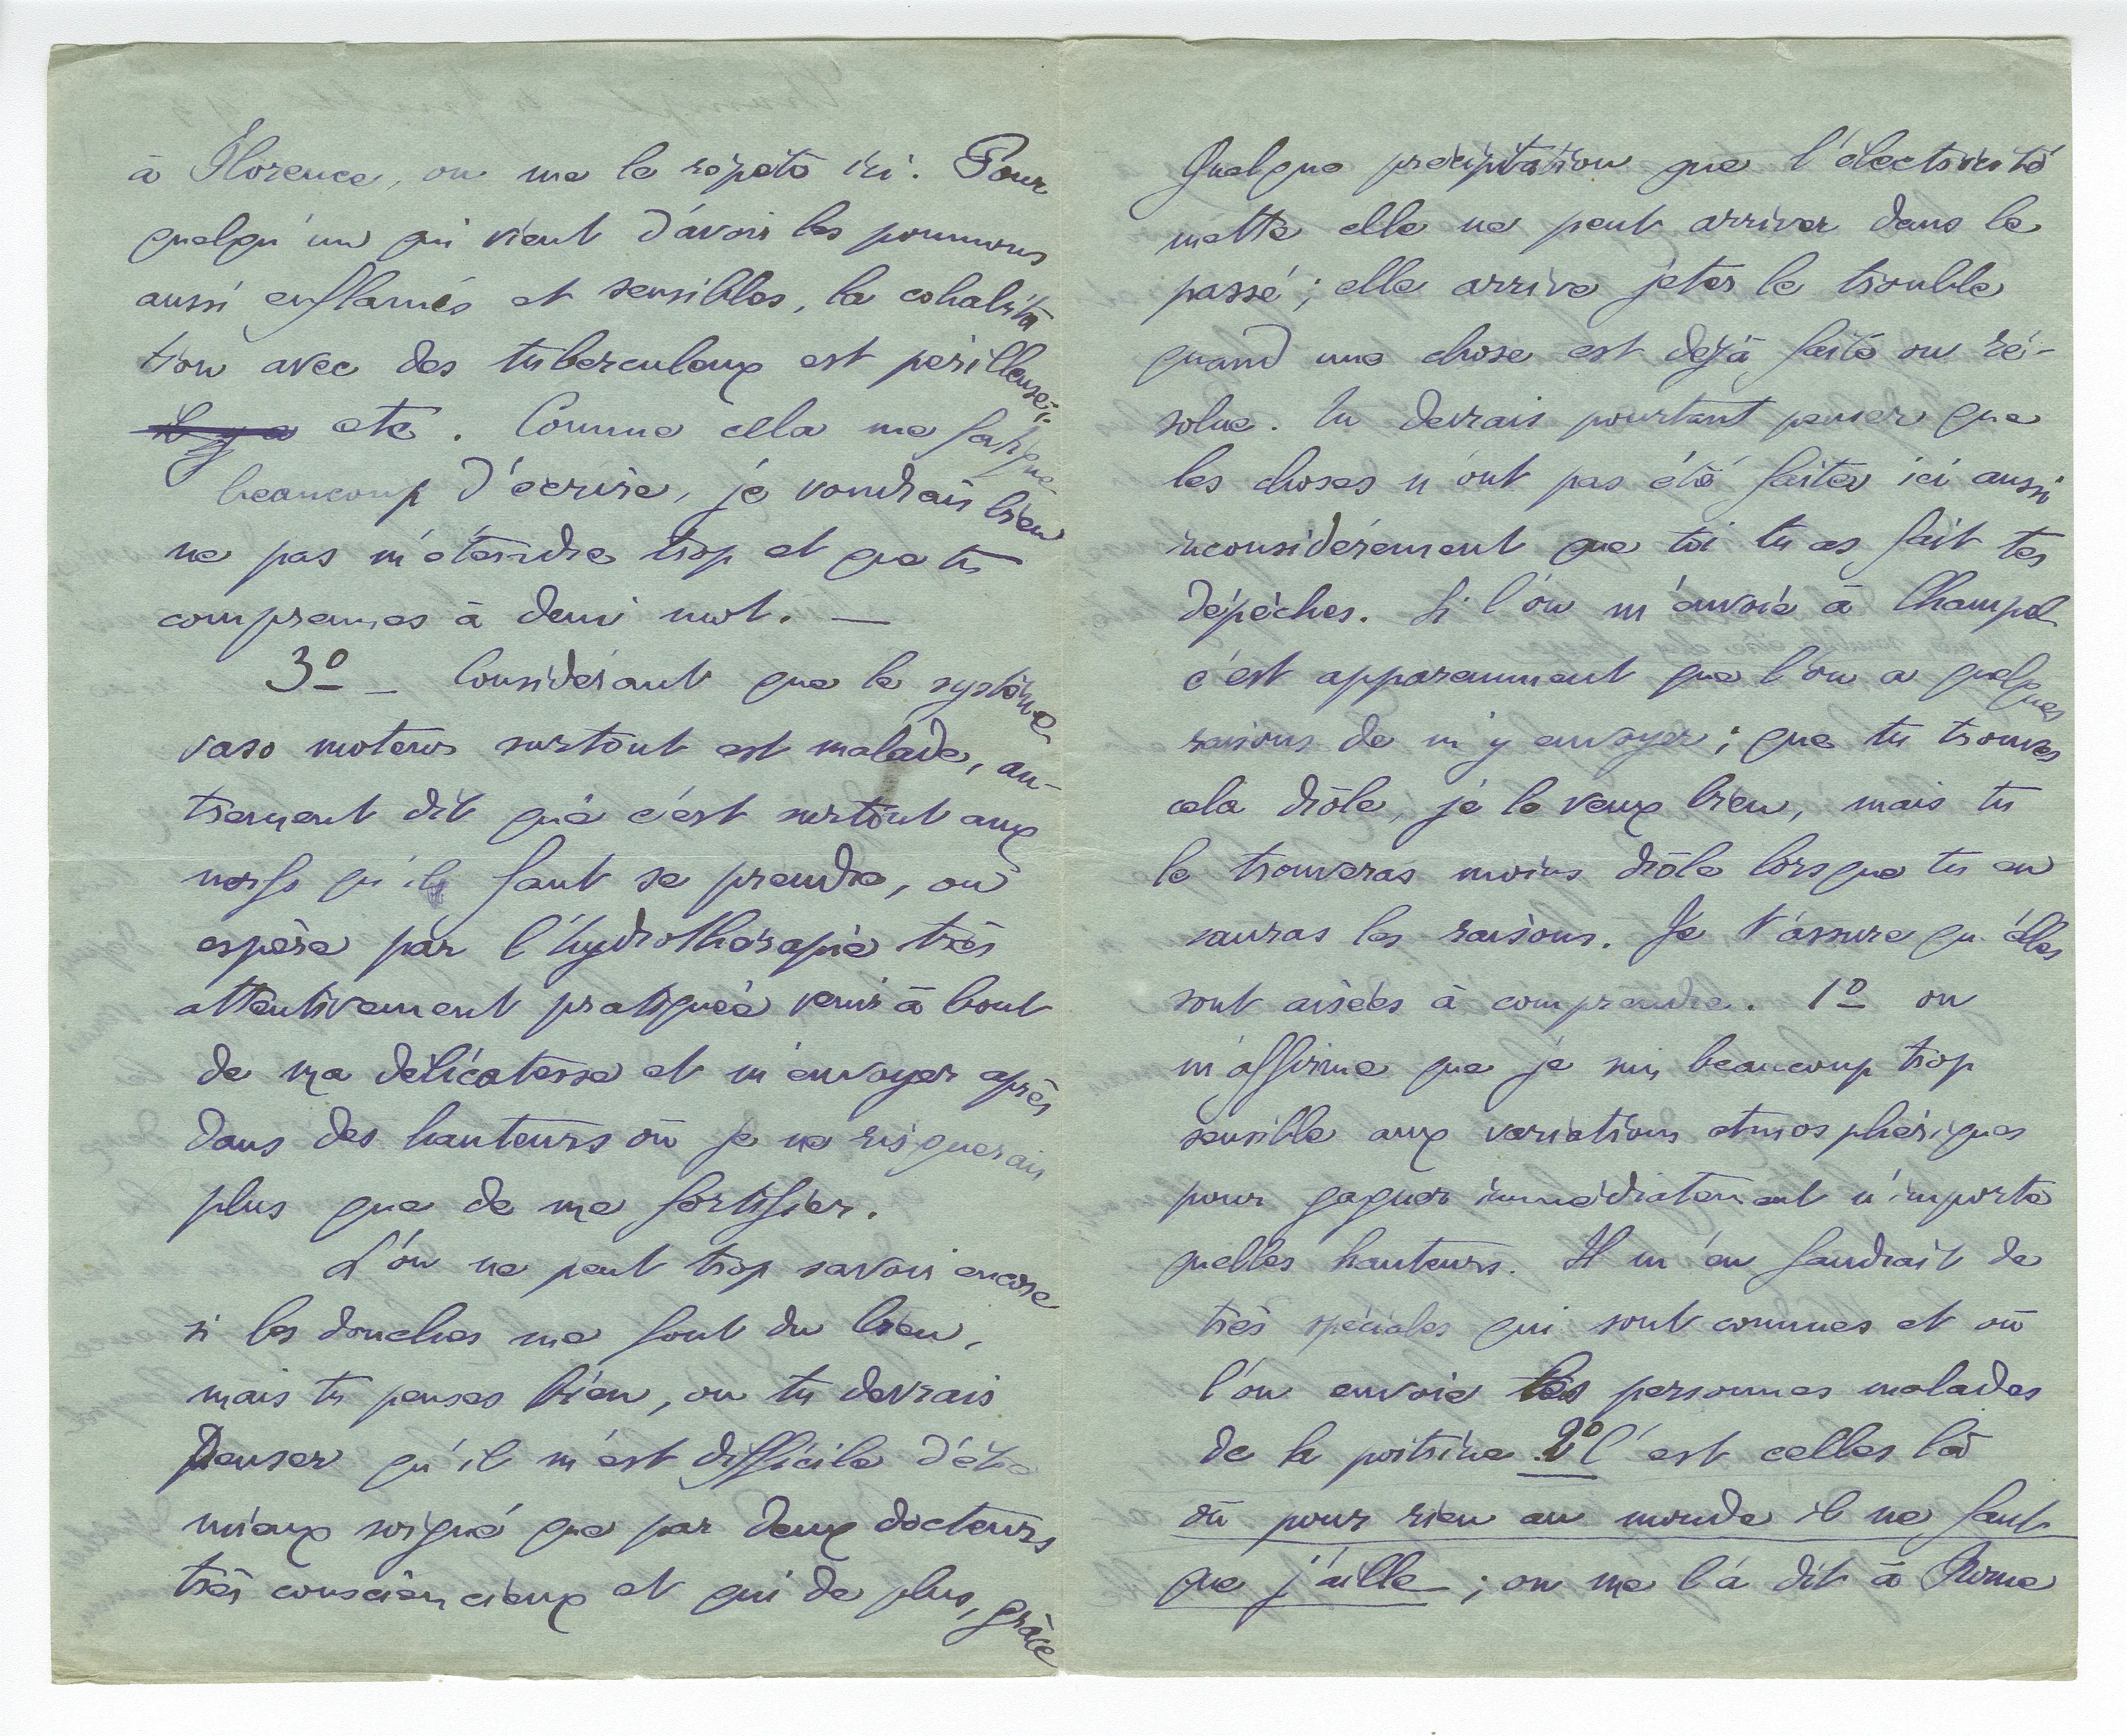 à Florence, on me le répète ici. Pour
quelqu'un qui vient d'avoir les poumons
aussi enflamés et sensibles, la cohabita
tion avec des tuberculeux est périlleuse;
il y a etc. Comme cela me fatigue
beaucoup d'écrire, je voudrais bien
ne pas m'étendre trop et que tu
comprennes à demi mot. —
3º — Considérant que le système
vaso moteur surtout est malade, au-
trement dit que c'est surtout aux
nerfs qu'il faut se prendre, on
espère par l'hydrothérapie très
attentivement pratiquée venir à bout
de ma délicatesse et m'envoyer après
dans des hauteurs où je ne risquerais
plus que de me fortifier.
L'on ne peut trop savoir encore
si les douches me font du bien,
mais tu penses bien, ou tu devrais
penser qu'il m'est difficile d'être
mieux soigné que par deux docteurs
très consciencieux et qui de plus, grâce
Quelque précipitation que l'électricité
mette elle ne peut arriver dans le
passé; elle arrive jeter le trouble
quand une chose est déjà faite ou ré-
solue. Tu devrais pourtant penser que
les choses n'ont pas été faites ici aussi
inconsidérément que toi tu as fait tes
dépêches. Si l'on m'envoie à Champel
c'est apparemment que l'on a quelques
raisons de m'y envoyer; que tu trouves
cela drôle, je le veux bien, mais tu
le trouveras moins drôle lorsque tu en
sauras les raisons. Je t'assure qu'elles
sont aisées à comprendre. 1º on
m'affirme que je suis beaucoup trop
sensible aux variations atmosphériques
pour gagner immédiatement n'importe
quelles hauteurs. Il m'en faudrait de
très spéciales qui sont connues et où
l'on envoie les personnes malades
de la poitrine. 2º C'est celles là
où pour rien au monde il ne faut
que j'aille; on me l'a dit à Rome